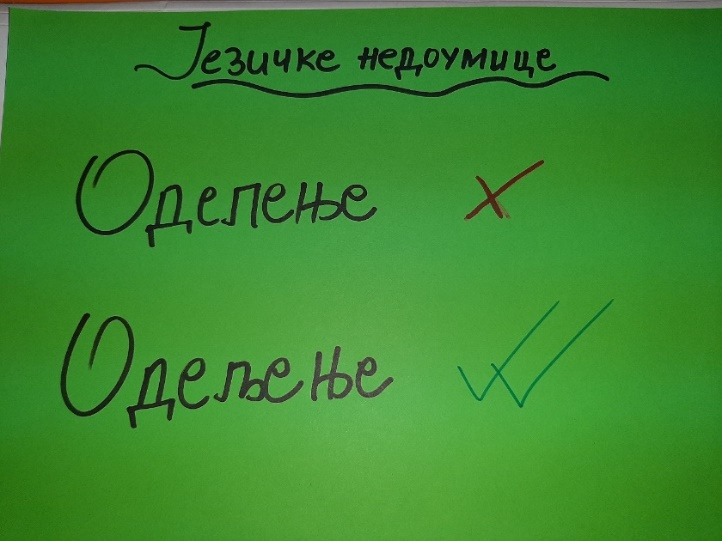 Језичке недоумице
Оделење
Одељење